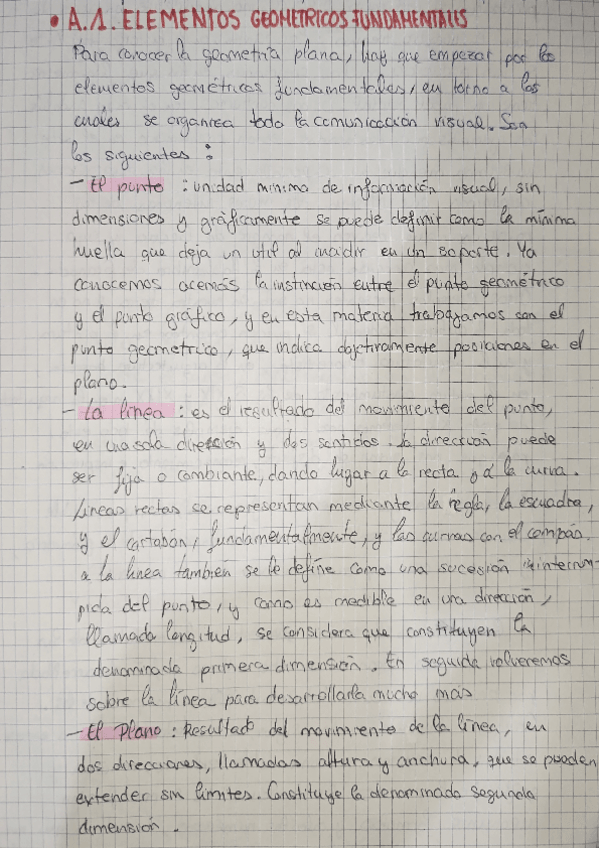 • A.1. ELEMENTOS GEOMETRICOS FUNDAMENTALES
Para conocer la geometría plana, hay que empezar por los
elementos geométricos fundamentales, en torno a los
cuales se organiza todo la comunicación visual. Son
los siguientes:
- El punto: unidad mínima de información visual, sin
dimensiones y gráficamente se puede definir como la mínima
huella que deja un util al incidir en un soporte. Ya
conocemos además la instinción entre el punto geométrico
y el punto gráfico, y en esta materia trabajamos con el
punto geometrico, que indica objetivamente posiciones en el
plano.
- La línea: es el resultado del movimiento del punto,
en una sola dirección y dos sentidos. La dirección puede
ser fija o cambiante, dando lugar a la recta o a la curva.
Líneas rectas se representan mediante la regla, la escuadra,
y el cartabón, fundamentalmente, y las curvas con el compás.
a la línea también se le define como una sucesión ininterrum-
pida del punto, y como es medible en una dirección,
llamada longitud, se considera que constituyen la
denominada primera dimensión. En seguida volveremos
sobre la línea para desarrollarla mucho más
- El Plano: Resultado del movimiento de la línea, en
dos direcciones, llamadas altura y anchura, que se pueden
extender sin límites. Constituye la denominada segunda
dimensión.